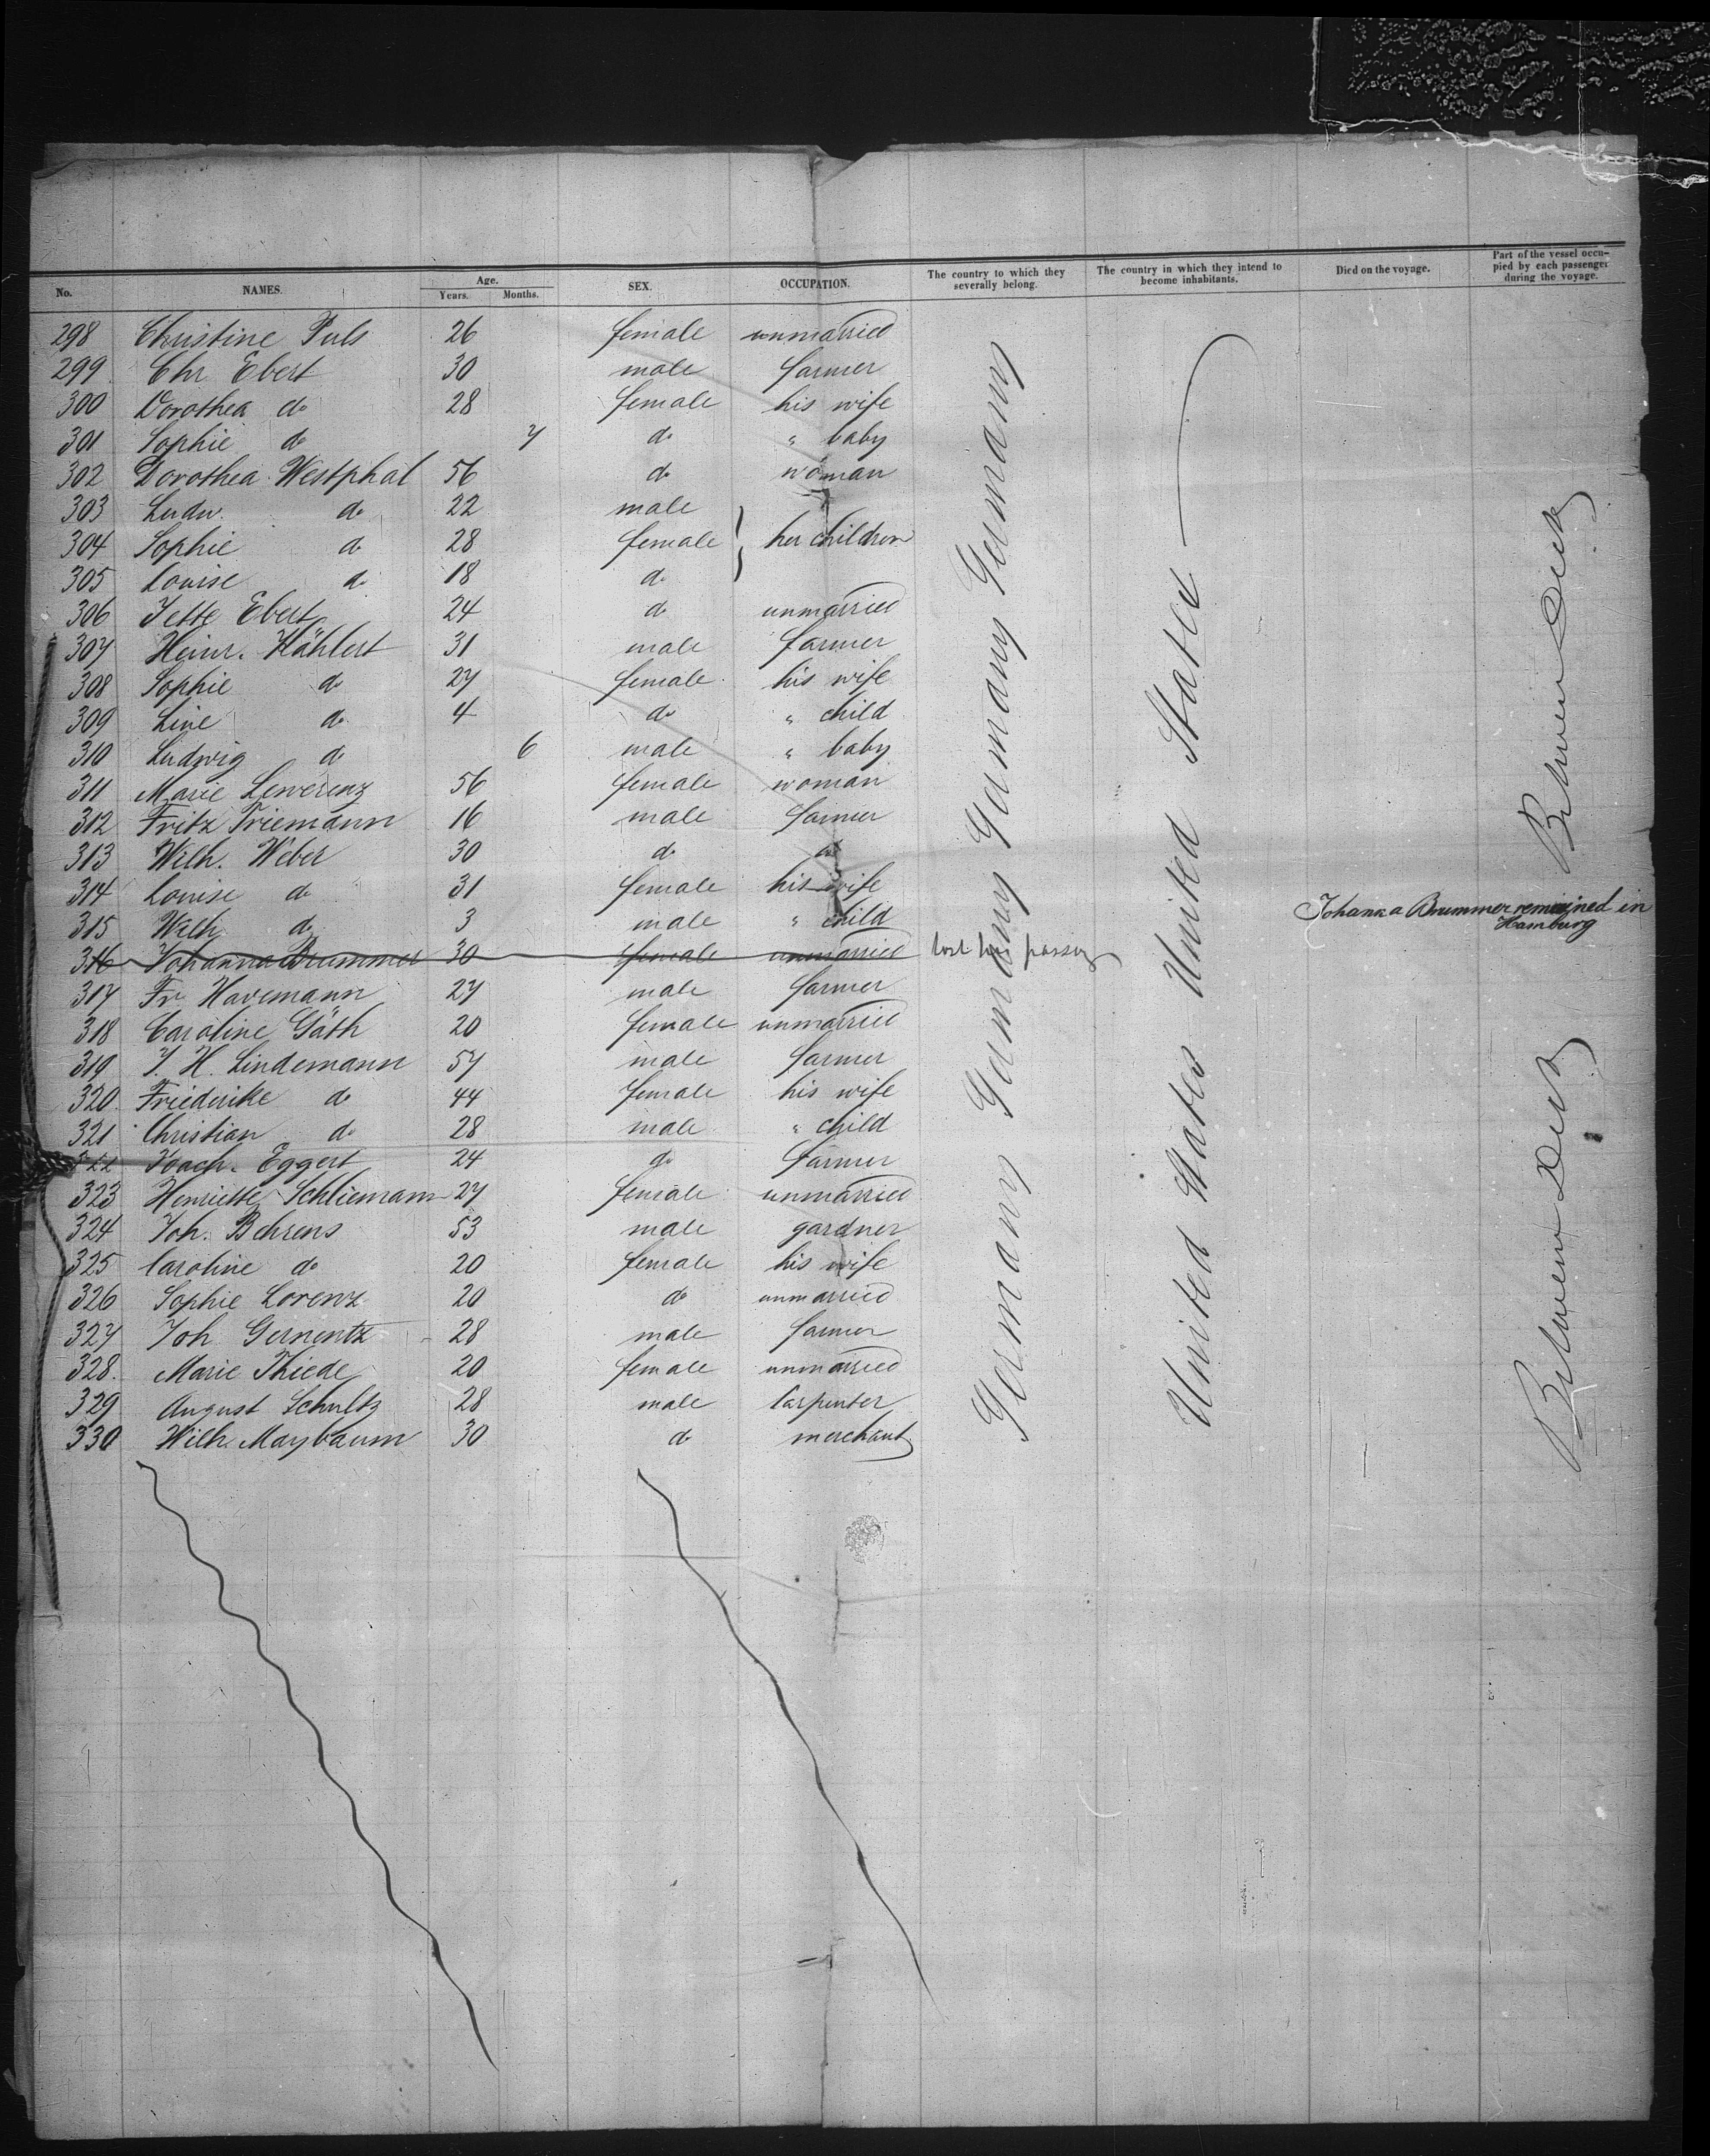 No. NAMES. Age. Years. Months. SEX. OCCUPATION. The country to which they severally belong. The country in which they intend to become inhabitants. Died on the voyage. Part of the vessel occupied by each passenger during the voyage.
298 Christine Puls 26 female unmarried
299 Chr Ebert 30 male farmer
300 Dorothea do 28 female his wife
301 Sophie do 7 do " baby
302 Dorothea Westphal 56 do woman
303 Ludw. do 22 male
304 Sophie do 28 female her children
305 Louise do 18 do
306 Jette Ebert 24 do unmarried
307 Heinr. Hählert 31 male farmer
308 Sophie do 27 female his wife
309 Line do 4 do " child
310 Ludwig do 6 male " baby
311 Marie Lewerenz 56 female woman
312 Fritz Friemann 16 male farmer
313 Wilh. Weber 30 do do
314 Louise do 31 female his wife
315 Wilh do 3 male " child
316 Johanna Brummer 30 female unmarried lost her passage
Johanna Brummer remained in Hamburg
317 Fr Havemann 27 male farmer
318 Caroline Gäth 20 female unmarried
319 J. H. Lindemann 57 male farmer
320. Friederike do 44 female his wife
321 Christian do 28 male " child
322 Joach. Eggert 24 do farmer
323 Henriette Schliemann 27 female unmarried
324 Joh. Behrens 53 male gardner
325 Caroline do 20 female his wife
326 Sophie Lorenz 20 do unmarried
327 Joh Gernentz 28 male farmer
328. Marie Thiede 20 female unmarried
329 August Schultz 28 male Carpenter
330 Wilh. Maybaum 30 do merchant
Germany Germany Germany Germany
United States United States
Between Deck Between Deck